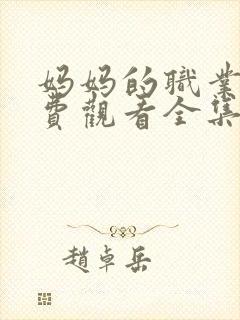 妈妈的職業
費觀看全集
趙卓岳